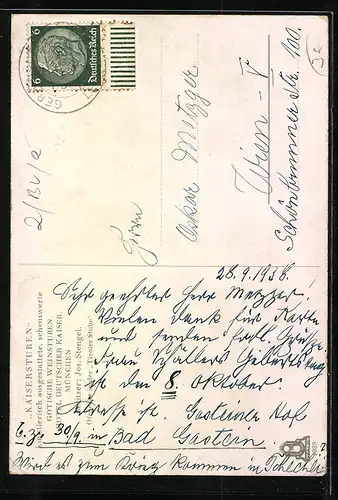 Deutsches Reich
6
6
2/BV/a
Herrn
Oskar Metzger
Wien - V
Schönbrunner Str. 100.
"KAISERSTUBEN"
künstlerisch ausgestattete, sehenswerte
GOTISCHE WEINSTUBEN
HOTEL DEUTSCHER KAISER,
MÜNCHEN
Besitzer: Jos. Stengel.
"Tiroler Stube"
28.9.1938.
Sehr geehrter Herr Metzger!
Vielen Dank für Karte
und senden frdl. Grüße.
Frau Schillers Geburtstag
ist den 8. Oktober.
Adresse ist. Gasteiner Hof
30/9. in Bad Gastein.
Wird es zum Krieg kommen in Tschechei?